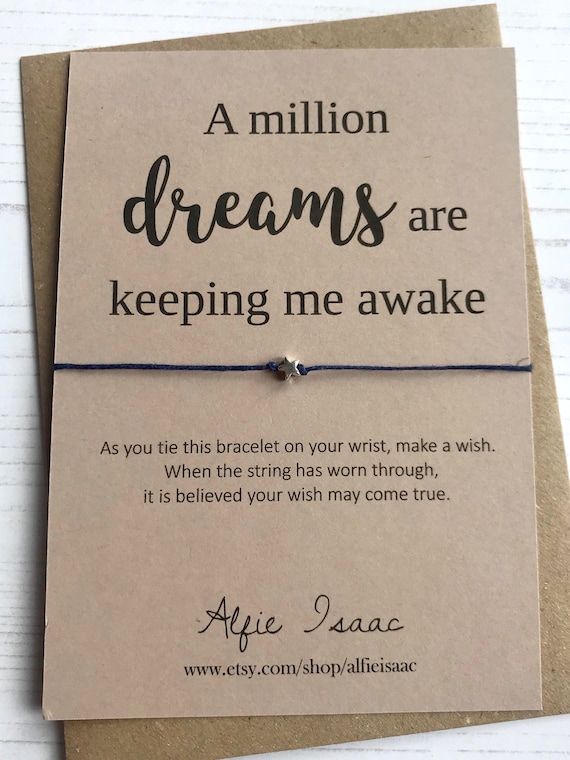 A million
dreams are
keeping me awake
As you tie this bracelet on your wrist, make a wish.
When the string has worn through,
it is believed your wish may come true.
Alfie Isaac
www.etsy.com/shop/alfieisaac